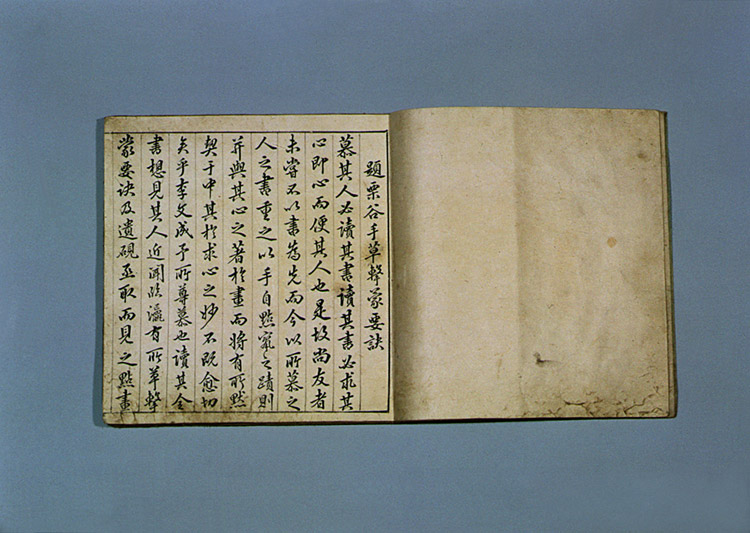 題栗谷手草擊蒙要訣
慕其人必讀其書讀其書必求其
心即心而便其人也是故尚友者
未嘗不以書爲先而今以所慕之
人之書重之以手自點竄之蹟則
并與其心之著於畫而將有所默
契于中其於求心之妙不旣愈切
矣乎李文成予所尊慕也讀其全
書想見其人近聞臨瀛有所草擊
蒙要訣及遺硯亟取而見之點畫